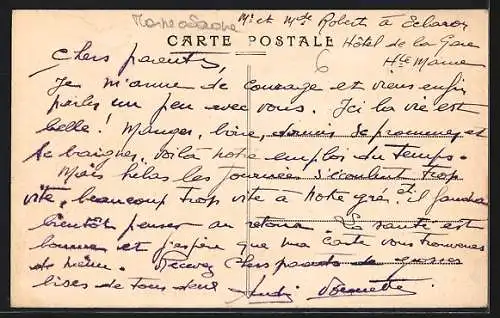 Mr et Mde Robert à Eclaron
CARTE POSTALE
Hôtel de la Gare
Hte Marne
Chers parents,
Je m'arme de courage et viens enfin
parler un peu avec vous. Ici la vie est
belle ! Manger, boire, dormir se promener et
se baigner, voilà notre emploi du temps.
Mais hélas les journées s'écoulent trop
vite, beaucoup trop vite à notre gré et il faudra
bientôt penser au retour. La santé est
bonne et j'espère que ma carte vous trouvera
de même. Recevez Chers parents de
bises de tous deux